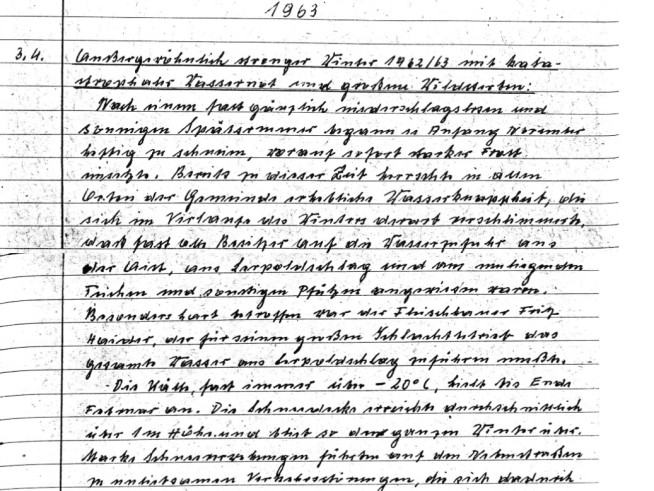 1963
3.4. Außergewöhnlich strenger Winter 1962/63 mit kata-
strophaler Wassernot und großem Wildsterben:
Nach einem fast gänzlich niederschlagslosen und
sonnigen Spätsommer begann es Anfang November
heftig zu schneien, worauf sofort starker Frost
einsetzte. Bereits zu dieser Zeit herrschte in allen
Orten der Gemeinde erhebliche Wasserknappheit, die
sich im Verlaufe des Winters derart verschlimmerte,
daß fast alle Besitzer auf die Wasserzufuhr aus
der Aist, aus Leopoldschlag und aus umliegenden
Teichen und sonstigen Pfützen angewiesen waren.
Besonders hart betroffen war der Fleischhauer Fritz
Haider, der für seinen großen Schlachtbetrieb das
gesamte Wasser aus Leopoldschlag zuführen mußte.
Die Kälte, fast immer über -20°C, hielt bis Ende
Februar an. Die Schneedecke erreichte durchschnittlich
über 1m Höhe und blieb so den ganzen Winter über.
Starke Schneeverwehungen führten auf den Nebenstraßen
zu unliebsamen Verkehrsstörungen, die sich dadurch